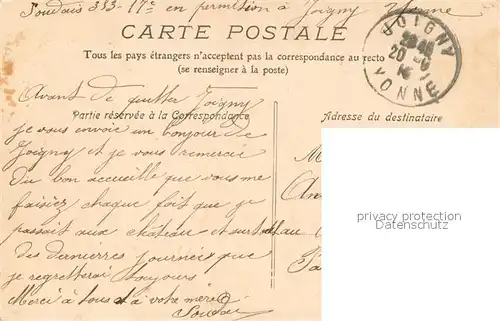 Soudais 333-17e en permission à Joigny Yonne
CARTE POSTALE
JOIGNY
20
YONNE
Tous les pays étrangers n'acceptent pas la correspondance au recto
(se renseigner à la poste)
Avant de quitter Joigny
Partie réservée à la Correspondance
Adresse du destinataire
je vous envoie un bonjour de
Joigny et je vous remercie
du bon accueille que vous me
faisiez chaque fois que je
passait aux château et surtout au
des dernierres journeés que
je regretterai toujours
Merci à tous et à votre mère
Soudais
M
An
privacy protection